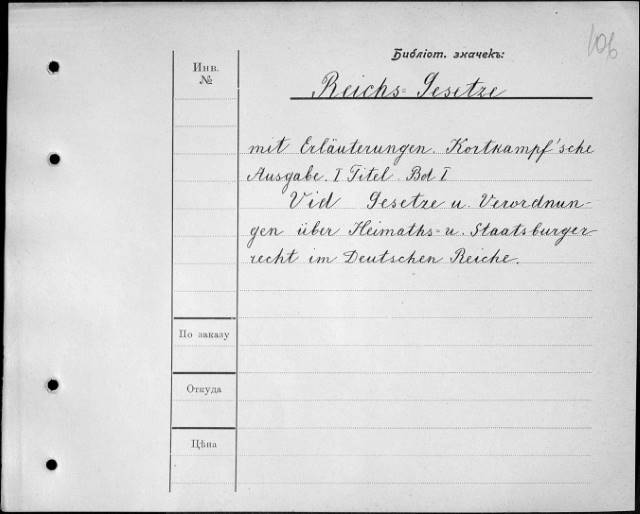 106
Библіот. значекъ:
Инв.
№
Reichs=Gesetze
mit Erläuterungen. Kortkampf'sche
Ausgabe. I Titel. Bd I
Vid Gesetze u. Verordnun-
gen über Heimaths= u. Staatsburger-
recht im Deutschen Reiche.
По заказу
Откуда
Цѣна